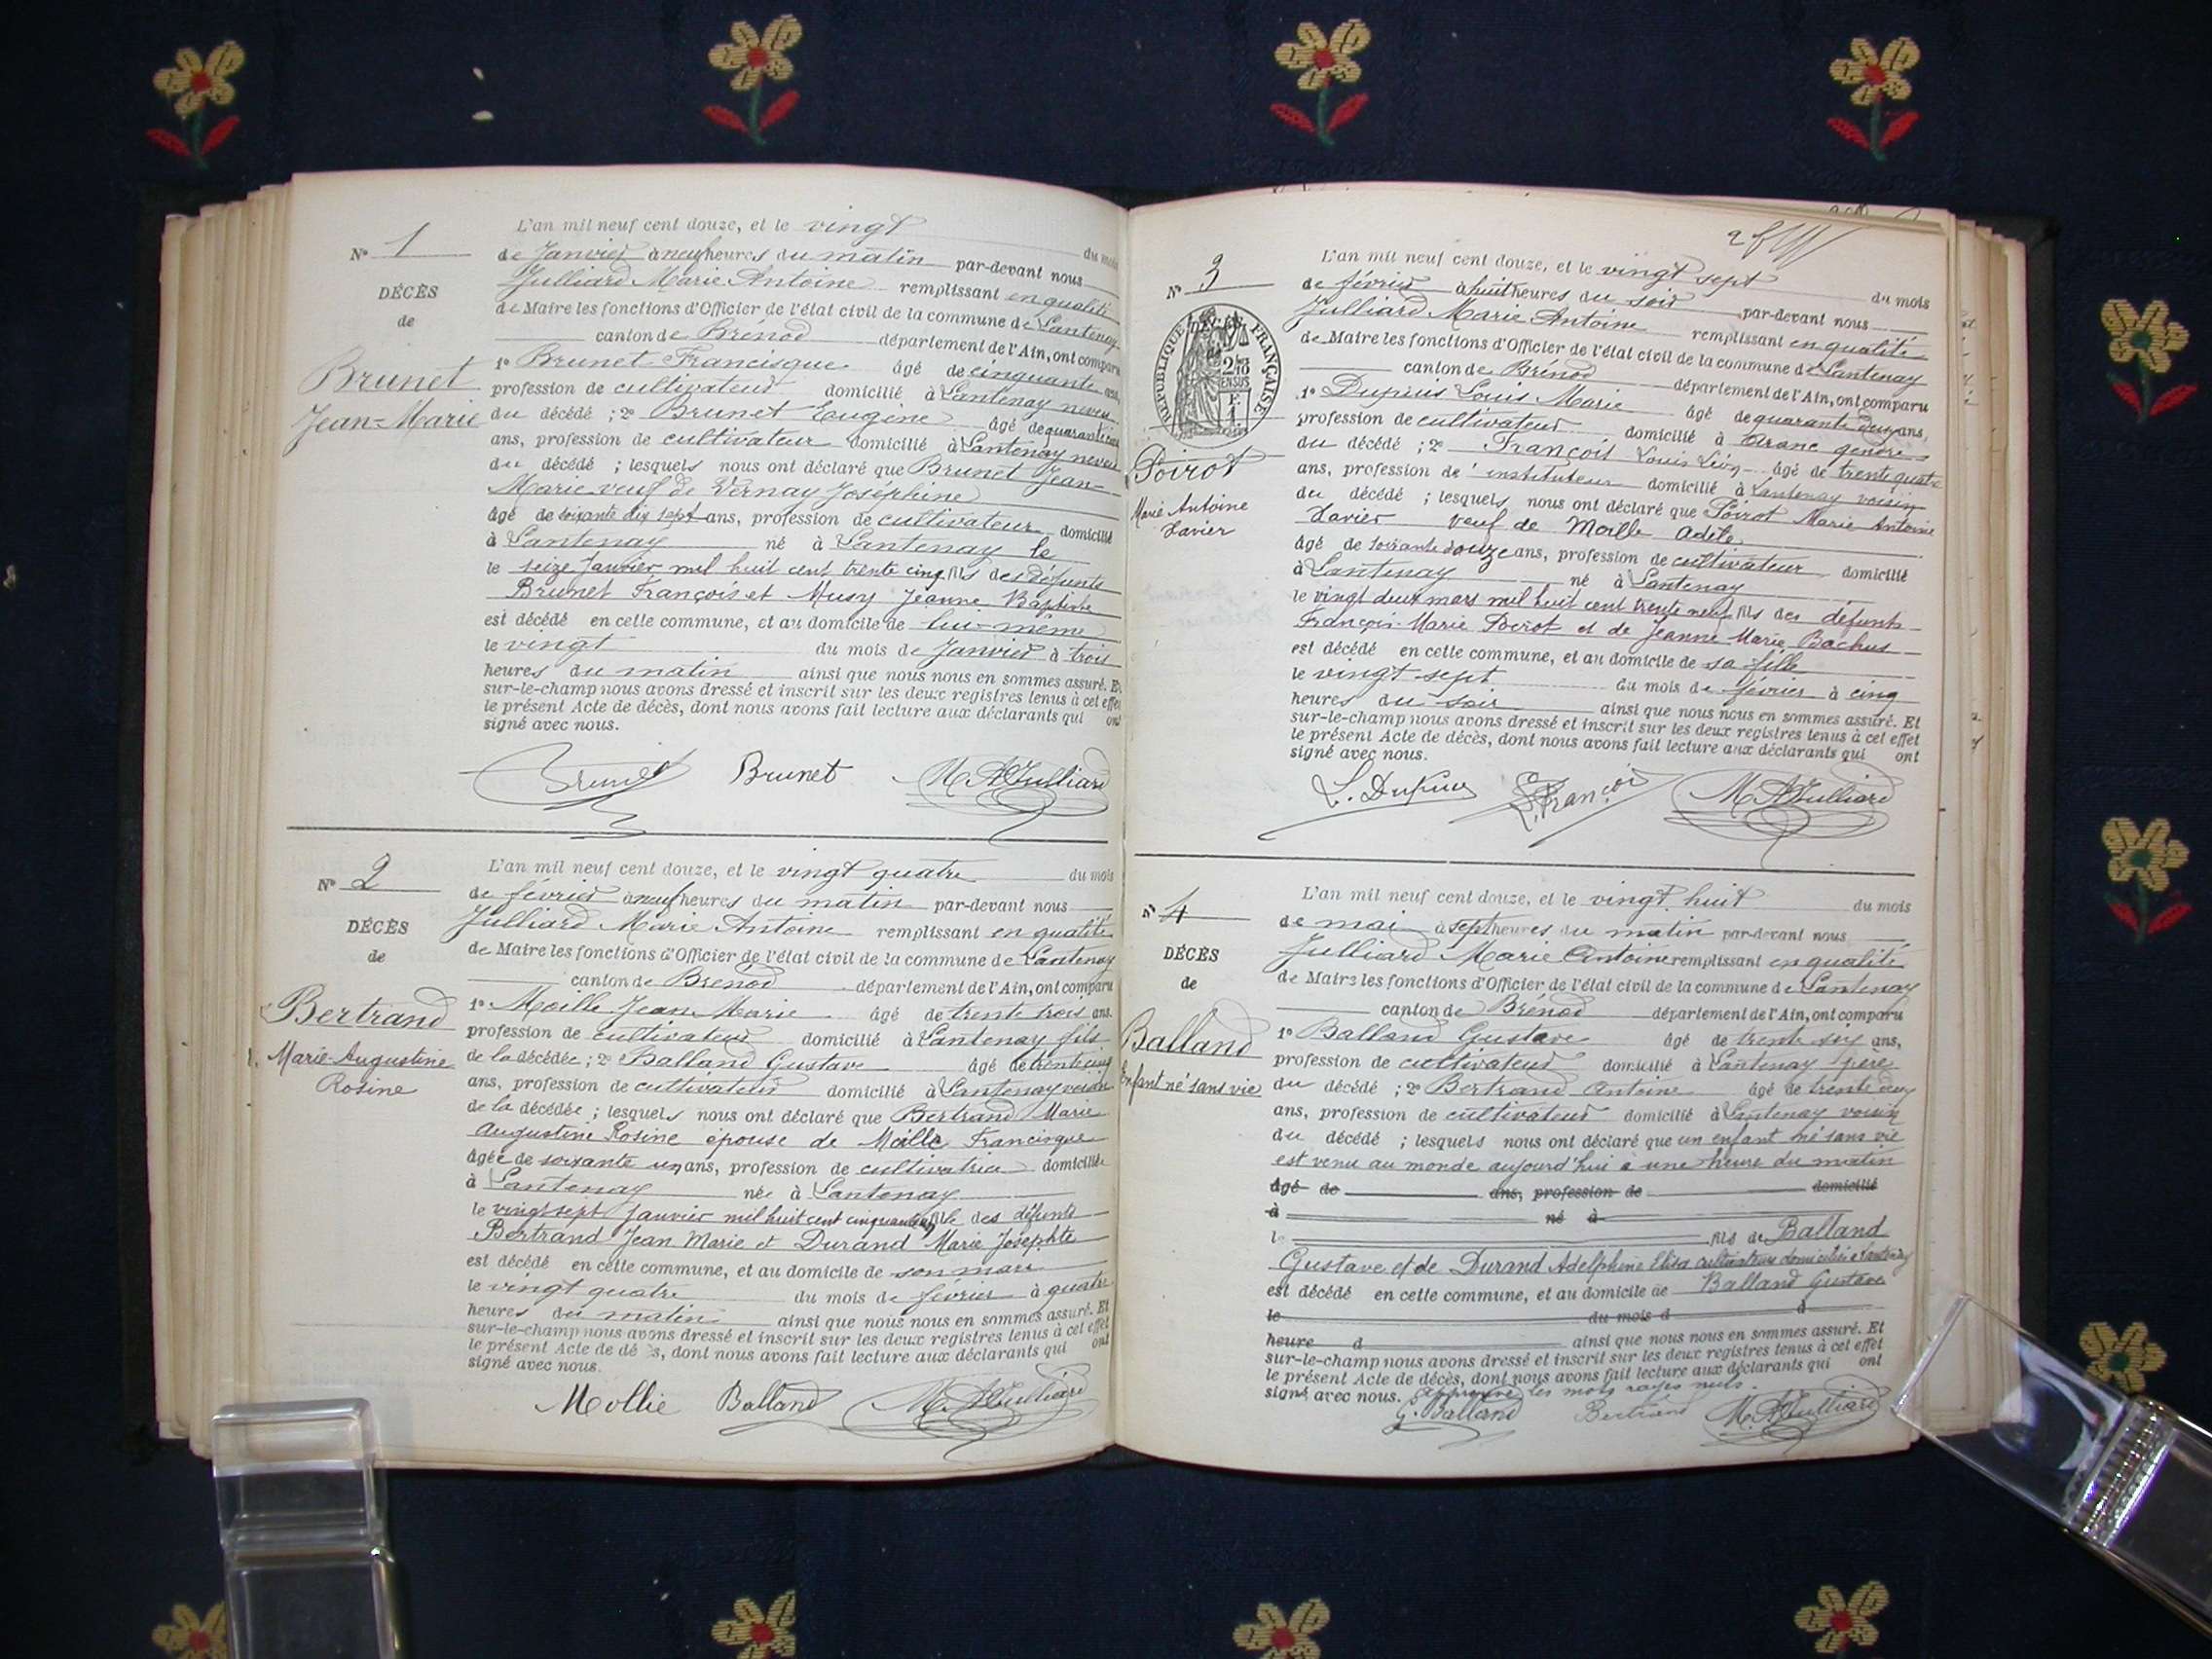 L'an mil neuf cent douze, et le vingt
N° 1
du mois
de Janvier à neuf heures du matin par-devant nous
Julliard Marie Antoine remplissant en qualité
DÉCÈS
de Maire les fonctions d'Officier de l'état civil de la commune de Lantenay
de
canton de Brénod département de l'Ain, ont comparu
1° Brunet Francisque âgé de cinquante ans,
Brunet
profession de cultivateur domicilié à Lantenay neveu
Jean-Marie
du décédé ; 2° Brunet Eugène âgé de quarante
ans, profession de cultivateur domicilié à Lantenay neveu
du décédé ; lesquels nous ont déclaré que Brunet Jean-
Marie veuf de Vernay Joséphine
âgé de soixante dix sept ans, profession de cultivateur domicilié
à Lantenay né à Lantenay le
le seize Janvier mil huit cent trente cinq fils des défunts
Brunet François et Musy Jeanne Baptiste
est décédé en cette commune, et au domicile de lui-même
le vingt du mois de Janvier à trois
heures du matin ainsi que nous nous en sommes assuré. Et
sur-le-champ nous avons dressé et inscrit sur les deux registres tenus à cet effet
le présent Acte de décès, dont nous avons fait lecture aux déclarants qui ont
signé avec nous.
Brunet Brunet M. A. Julliard
L'an mil neuf cent douze, et le vingt quatre du mois
N° 2
de février à neuf heures du matin par-devant nous
Julliard Marie Antoine remplissant en qualité
DÉCÈS
de Maire les fonctions d'Officier de l'état civil de la commune de Lantenay
de
canton de Brénod département de l'Ain, ont comparu
Bertrand
1° Moille Jean Marie âgé de trente trois ans.
profession de cultivateur domicilié à Lantenay fils
Marie-Augustine
de la décédée ; 2° Balland Gustave âgé de trente cinq
Rosine
ans, profession de cultivateur domicilié à Lantenay voisin
de la décédée ; lesquels nous ont déclaré que Bertrand Marie
Augustine Rosine épouse de Moille Francisque
âgée de soixante un ans, profession de cultivatrice domiciliée
à Lantenay née à Lantenay
le vingt sept Janvier mil huit cent cinquante fille des défunts
Bertrand Jean Marie et Durand Marie Josephte
est décédé en cette commune, et au domicile de son mari
le vingt quatre du mois de février à quatre
heures du matin ainsi que nous nous en sommes assuré. Et
sur-le-champ nous avons dressé et inscrit sur les deux registres tenus à cet effet
le présent Acte de dé s, dont nous avons fait lecture aux déclarants qui ont
signé avec nous.
Mollie Balland M. A. Julliard
L'an mil neuf cent douze, et le vingt sept
N° 3
du mois
de février à huit heures du soir par-devant nous
Julliard Marie Antoine remplissant en qualité
RÉPUBLIQUE FRANÇAISE
de Maire les fonctions d'Officier de l'état civil de la commune de Lantenay
canton de Brénod département de l'Ain, ont comparu
2/10
EN SUS
1° Dupuis Louis Marie âgé de quarante deux ans,
profession de cultivateur domicilié à Aranc gendre
du décédé ; 2° François Louis Léon âgé de trente quatre
Poirot
ans, profession d'instituteur domicilié à Lantenay voisin
Marie Antoine
du décédé ; lesquels nous ont déclaré que Poirot Marie Antoine
Xavier
Xavier veuf de Moille Adèle
âgé de soixante douze ans, profession de cultivateur domicilié
à Lantenay né à Lantenay
le vingt deux mars mil huit cent trente neuf fils des défunts
François-Marie Poirot et de Jeanne Marie Bachus
est décédé en cette commune, et au domicile de sa fille
le vingt sept du mois de février à cinq
heures du soir ainsi que nous nous en sommes assuré. Et
sur-le-champ nous avons dressé et inscrit sur les deux registres tenus à cet effet
le présent Acte de décès, dont nous avons fait lecture aux déclarants qui ont
signé avec nous.
L. Dupuis L. François M. A. Julliard
L'an mil neuf cent douze, et le vingt huit du mois
N° 4
de mai à sept heures du matin par-devant nous
Julliard Marie Antoine remplissant en qualité
DÉCÈS
de Maire les fonctions d'Officier de l'état civil de la commune de Lantenay
de
canton de Brénod département de l'Ain, ont comparu
Balland
1° Balland Gustave âgé de trente six ans,
profession de cultivateur domicilié à Lantenay père
Enfant né sans vie
du décédé ; 2° Bertrand Antoine âgé de trente deux
ans, profession de cultivateur domicilié à Lantenay voisin
du décédé ; lesquels nous ont déclaré que un enfant né sans vie
est venu au monde aujourd'hui à une heure du matin
âgé de ans, profession de domicilié
à né à
le fils de Balland
Gustave et de Durand Adelphine Elisa cultivateurs domiciliés à Lantenay
est décédé en cette commune, et au domicile de Balland Gustave
le du mois d à
heure d ainsi que nous nous en sommes assuré. Et
sur-le-champ nous avons dressé et inscrit sur les deux registres tenus à cet effet
le présent Acte de décès, dont nous avons fait lecture aux déclarants qui ont
signé avec nous. Approuvé les mots rayés nuls.
G. Balland Bertrand M. A. Julliard